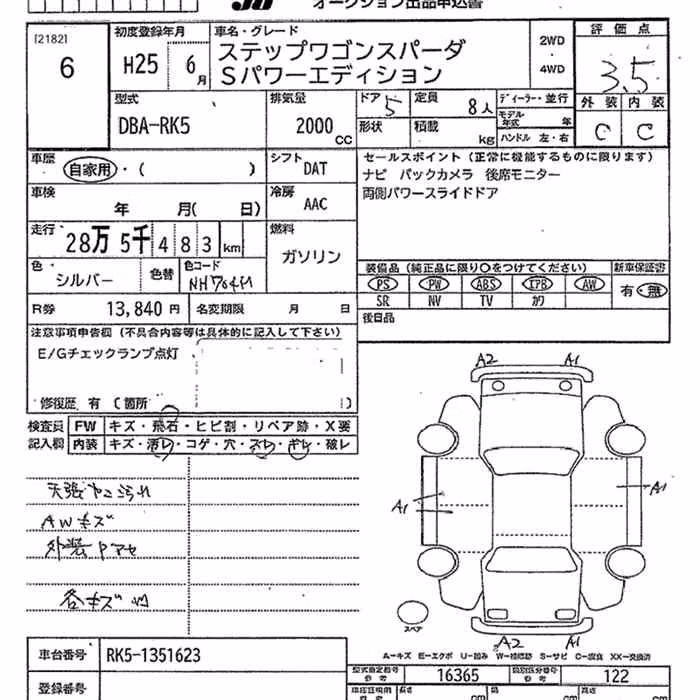 オークション出品申込書
[2182]
6
初度登録年月
H25 6月
車名・グレード
ステップワゴンスパーダ
Sパワーエディション
2WD
4WD
評価点
3.5
外装 内装
C C
型式
DBA-RK5
排気量
2000 CC
ドア 5
定員 8人
形状
積載 kg
ディーラー・並行
モデル年式 年
ハンドル 左・右
車歴
自家用・( )
シフト
DAT
車検
年 月( 日)
冷房
AAC
走行
28万5千483km
燃料
ガソリン
色 シルバー
色替
色コード
NH704M
R券 13,840円
名変期限 月 日
セールスポイント(正常に機能するものに限ります)
ナビ バックカメラ 後席モニター
両側パワースライドドア
装備品(純正品に限り○をつけてください)
新車保証書
PS PW ABS IAB AW
有・無
SR NV TV カワ
後日品
注意事項申告欄(不具合内容等は具体的に記入して下さい)
E/Gチェックランプ点灯
修復歴 有(箇所 )
検査員
記入欄
FW キズ・飛石・ヒビ割・リペア跡・X要
内装 キズ・汚レ・コゲ・穴・スレ・ギレ・破レ
天張ヤニ汚れ
AWキズ
外装
各キズ凹
A2 A1
A1 A1
A1
A2 A1
スペア
A-キズ E-エクボ U-凹み W-補修跡 S-サビ C-腐食 XX-交換済
車台番号 RK5-1351623
型式指定番号 16365
類別区分番号 122
登録番号
車庫証明用 長さ cm
幅 cm
高さ cm